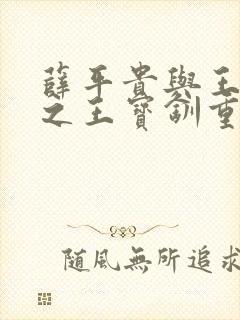 薛平貴與王
之王寶釧重
隨風無所追求